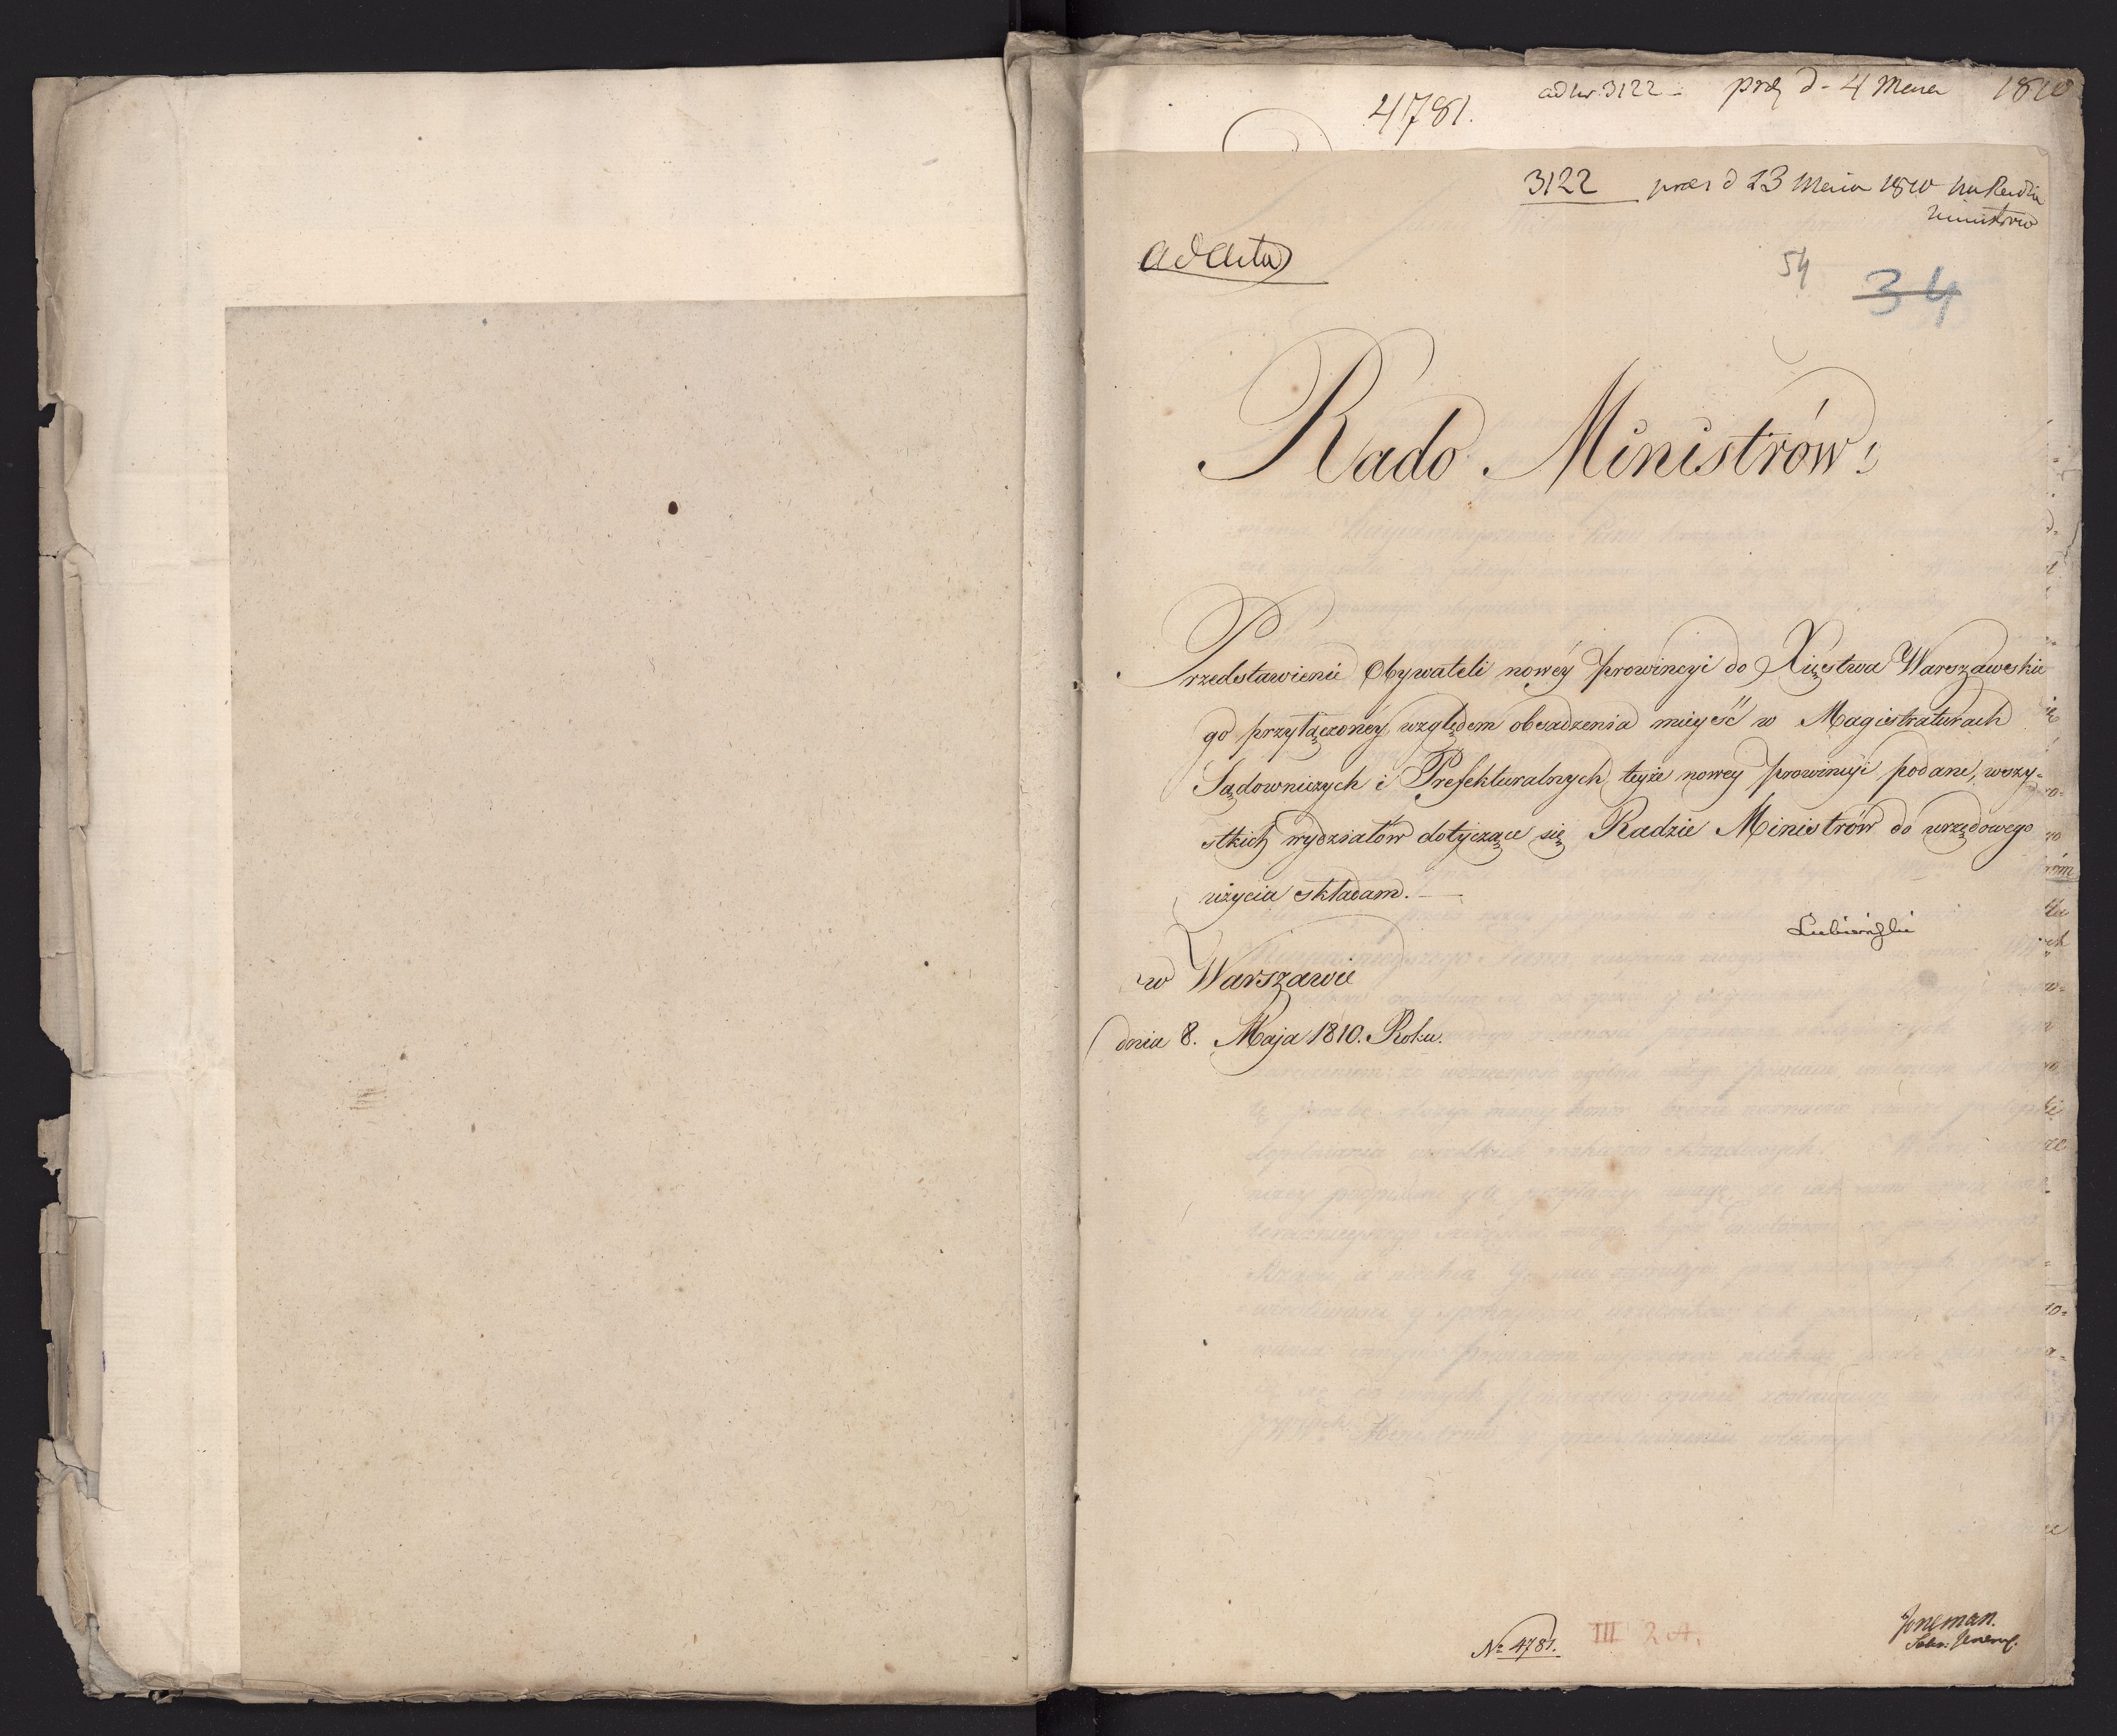 4781. ad Nr. 3122 prez d. 4 1810
3122 praes d 23 1810 na Radzie
Ministrów
ad Acta
54 34
Rado Ministrów!
Przedstawienie Obywateli nowéy prowincyi do Xięstwa Warszawskie
go przyłączonéy względem obsadzenia mieysć w Magistraturach
Sądowniczych i Prefekturalnych teyże nowey prowincyi podane, wszy-
stkich wydziałów dotyczące się Radzie Ministrów do urzędowego
użycia składam. —
Lubieński
w Warszawie
dnia 8. Maja 1810. Roku.
No 4781. III 2 A.
Joneman.
Sekr: Jeneral.